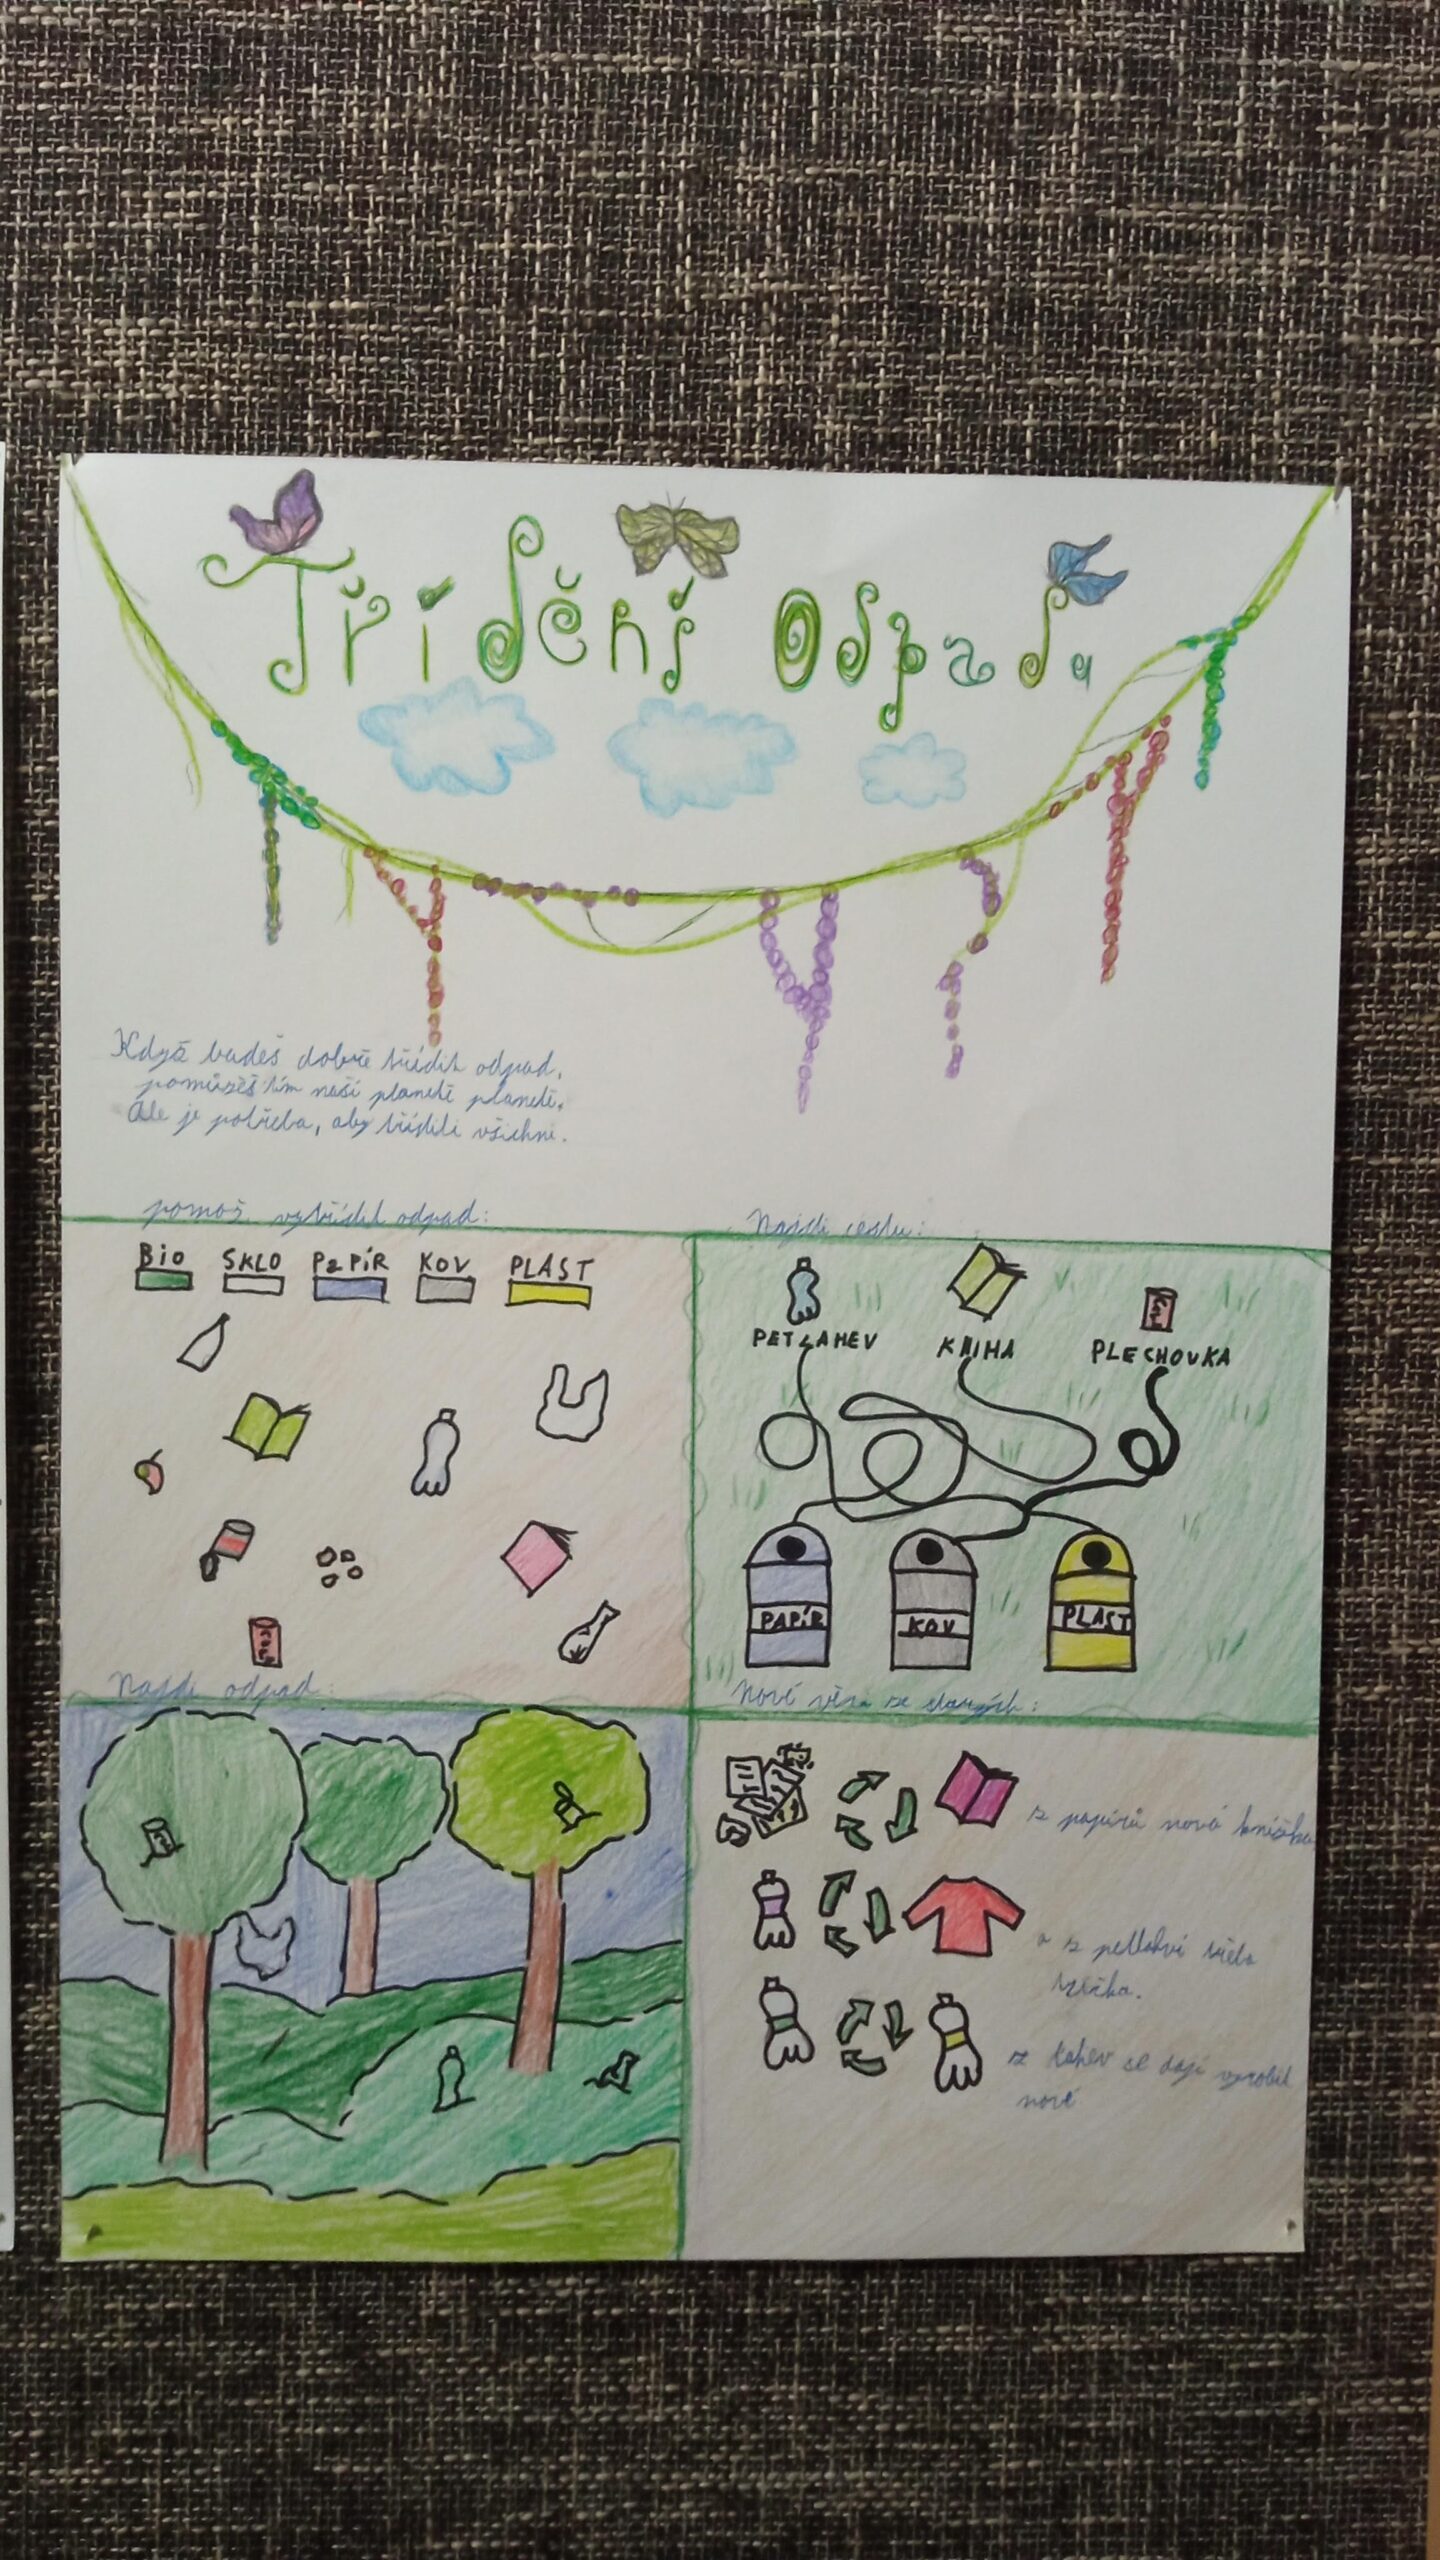 Třídění Odpadu
Když budeš dobře třídit odpad,
pomůžeš tím naší planetě planetě.
Ale je potřeba, aby třídili všichni.
pomoz vytřídit odpad:
BIO SKLO PAPÍR KOV PLAST
Najdi cestu:
PETLAHEV KNIHA PLECHOVKA
PAPÍR KOV PLAST
Najdi odpad:
Nové věci ze starých:
z papírů nová knížka
z petlahví třeba
trička.
z lahev se dají vyrobit
nové